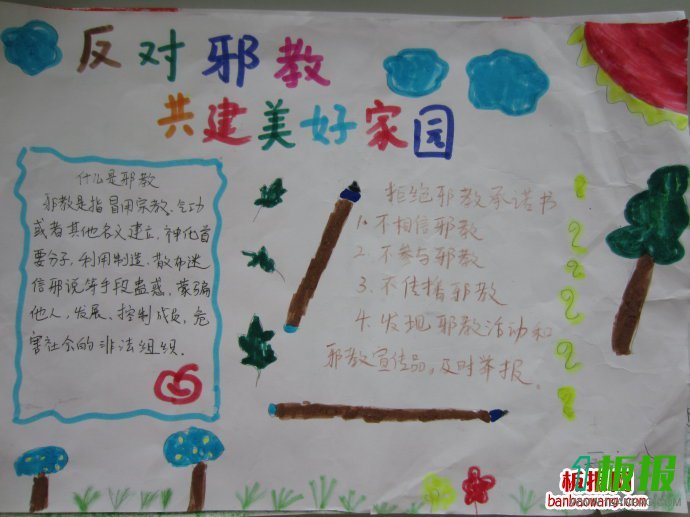 反对邪教
共建美好家园
什么是邪教
邪教是指冒用宗教、气功
或者其他名义建立,神化首
要分子,利用制造、散布迷
信邪说等手段蛊惑、蒙骗
他人,发展、控制成员,危
害社会的非法组织.
拒绝邪教承诺书
1. 不相信邪教
2. 不参与邪教
3. 不传播邪教
4. 发现邪教活动和
邪教宣传品,及时举报。
板报
板报网
banbaowang.com